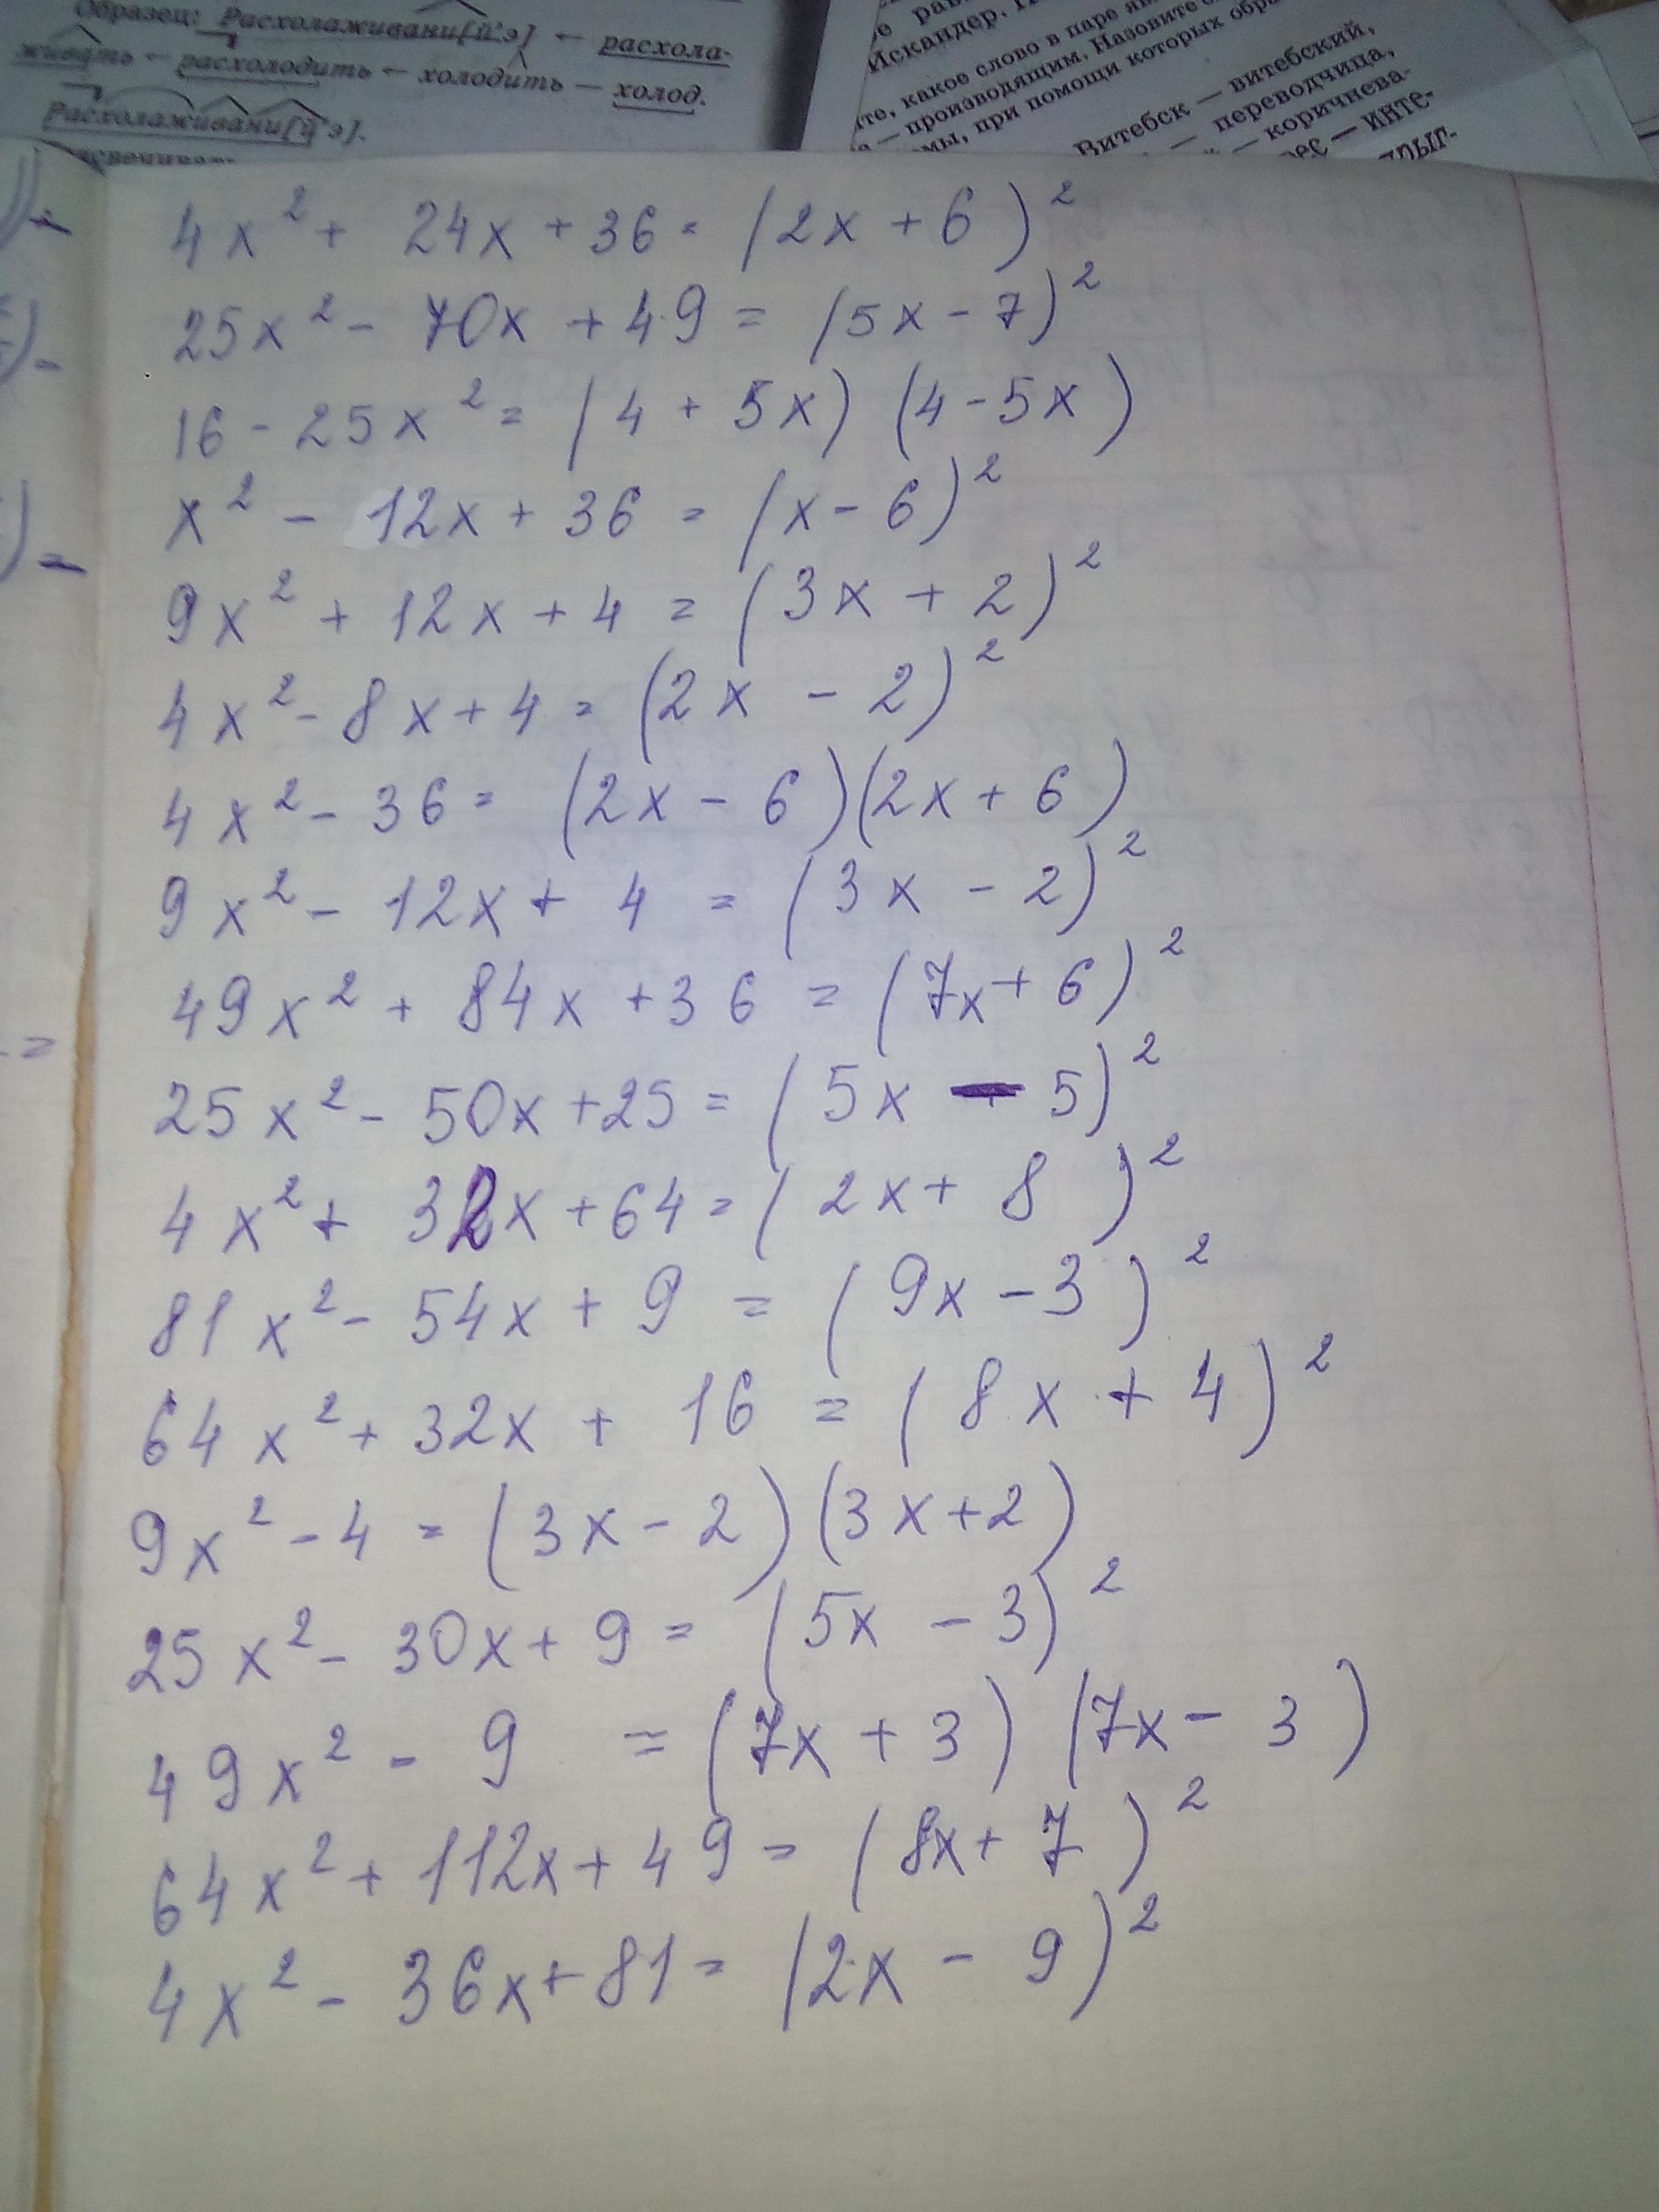 Образец: Расхолаживани[й'э] ← расхола-
живать ← расхолодить ← холодить — холод.
Расхолаживани[й'э].
равн
Искандер.
те, какое слово в паре яв
— производящим. Назовите с
мы, при помощи которых обра
Витебск — витебский,
— переводчица,
— коричнева-
рес — инте-
прыг-
4x² + 24x + 36 = (2x + 6)²
25x² - 70x + 49 = (5x - 7)²
16 - 25x² = (4 + 5x) (4 - 5x)
x² - 12x + 36 = (x - 6)²
9x² + 12x + 4 = (3x + 2)²
4x² - 8x + 4 = (2x - 2)²
4x² - 36 = (2x - 6)(2x + 6)
9x² - 12x + 4 = (3x - 2)²
49x² + 84x + 36 = (7x + 6)²
25x² - 50x + 25 = (5x - 5)²
4x² + 32x + 64 = (2x + 8)²
81x² - 54x + 9 = (9x - 3)²
64x² + 32x + 16 = (8x + 4)²
9x² - 4 = (3x - 2)(3x + 2)
25x² - 30x + 9 = (5x - 3)²
49x² - 9 = (7x + 3) (7x - 3)
64x² + 112x + 49 = (8x + 7)²
4x² - 36x + 81 = (2x - 9)²